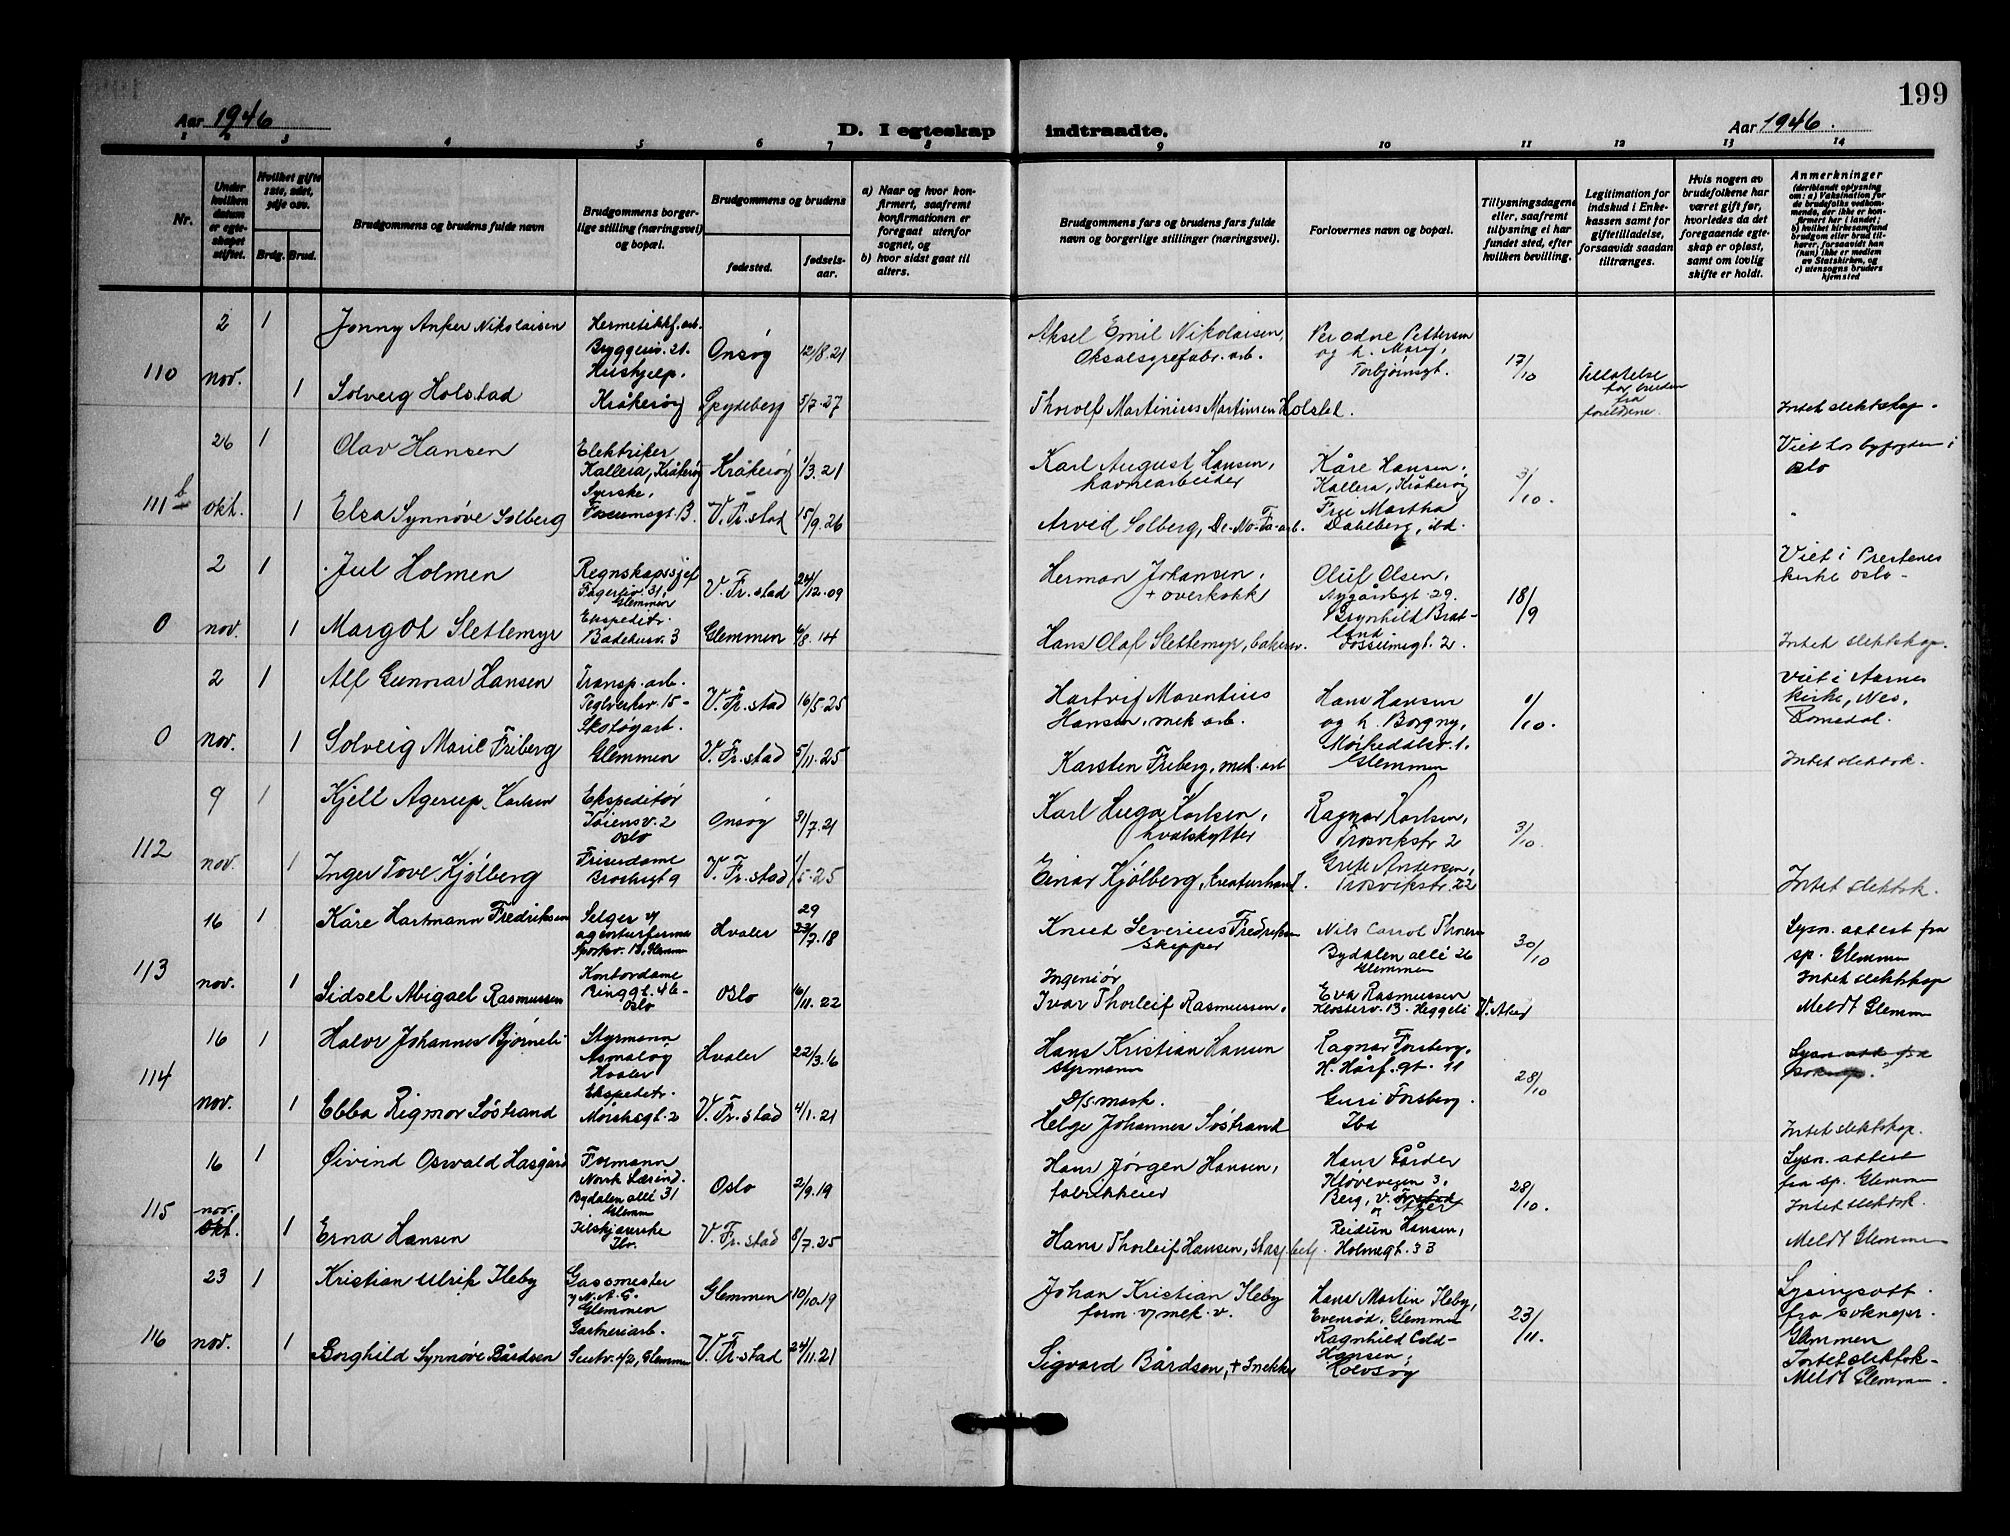 199
Aar 1946
D. I egteskap indtraadte.
Aar 1946.
1 2 3 4 5 6 7 8 9 10 11 12 13 14
Nr.
Under hvilken datum er egteskapet stiftet.
Hvilket gifte 1ste, 2det, 3dje osv.
Brdg. Brud.
Brudgommens og brudens fulde navn
Brudgommens borgerlige stilling (næringsvei) og bopæl.
Brudgommens og brudens
fødested.
fødselsaar.
a) Naar og hvor konfirmert, saafremt konfirmationen er foregaat utenfor sognet, og
b) hvor sidst gaat til alters.
Brudgommens fars og brudens fars fulde navn og borgerlige stillinger (næringsvei).
Forlovernes navn og bopæl.
Tillysningsdagene eller, saafremt tillysning ei har fundet sted, efter hvilken bevilling.
Legitimation for indskud i Enkekassen samt for giftetilladelse, forsaavidt saadan tiltrænges.
Hvis nogen av brudefolkene har været gift før, hvorledes da det foregaaende egteskap er opløst, samt om lovlig skifte er holdt.
Anmerkninger
(deriblandt oplysning om: a) Vaksination for de brudefolks vedkommende, der ikke er konfirmert her i landet; b) hvilket kirkesamfund brudgom eller brud tilhører, forsaavidt han (hun) ikke er medlem av Statskirken, og c) utensogns bruders hjemsted
110
2 nov.
1 Jonny Anker Nikolaisen
Hermetikkf.arb.
Bryggeriv. 21.
Onsøy 12/8.21
Aksel Emil Nikolaisen,
Oksalsyrefabr. arb.
Per Odne Pettersen
og h. Mary,
Torbjørnsgt.
17/10
Tillatelse
for bruden
fra
foreldrene.
1 Solveig Holstad
Hushjelp.
Kråkerøy
Spydeberg 5/7.27
Thorolf Martinius Martinsen Holstet.
Intet slektskap.
111 b
26 okt.
1 Olav Hansen
Elektriker
Kallera, Kråkerøy
Kråkerøy 1/3.21
Karl August Hansen,
havnearbeider
Kåre Hansen,
Kallera, Kråkerøy
3/10.
Viet hos byfogden i
Oslo
1 Elsa Synnøve Solberg
Syerske,
Fossumsgt. 13.
V. Fr.stad 15/9.26
Arvid Solberg, De-No-Fa-arb.
Frk Martha
Dahlberg, ibd.
"
0
2 nov.
1 Jul Holmen
Regnskapssjef
Fagerliv. 31,
Glemmen
V. Fr.stad 24/12.09
Herman Johansen,
+ overkokk
Oluf Olsen,
Nygårdsgt. 29.
18/9
Viet i Prestenes
kirke Oslo -
1 Margot Slettemyr
Ekspeditr.
Badehusv. 3
Glemmen 6/8.14
Hans Olaf Slettemyr, bakersv.
Brynhild Bratland
Fossumsgt. 2.
Intet slektskap.
0
2 nov.
1 Alf Gunnar Hansen
Transp. arb.
Teglverksv. 15 -
V. Fr.stad 16/5.25
Hartvig Mauritius
Hansen, mek arb.
Hans Hansen
og h. Borgny,
Mørkedalsv. 1.
Glemmen
6/10.
Viet i Aarnes
kirke, Nes,
Romedal.
1 Solveig Marie Friberg
Skotøyarb.
Glemmen
V. Fr.stad 5/11.25
Karsten Friberg, mek. arb
Intet slektsk.
112
9 nov.
1 Kjell Agerup Karlsen
Ekspeditør
Tøiensv. 2
Oslo
Onsøy 31/7.21
Karl Hugo Karlsen,
hvalskytter
Ragnar Karlsen,
Trosvikstr 2
3/10.
1 Inger Tove Kjølberg
Frisérdame
Brochsgt 9
V. Fr.stad 1/5.25
Einar Kjølberg, kreaturhand.
Grete Andersen,
Trosvikstr. 22
Intet slektsk.
113
16 nov.
1 Kåre Hartmann Fredriksen
Selger v/
agenturfirma
Sportsv. 18, Glemmen
Hvaler 29 23/7.18
Knut Severius Fredriksen
Skipper
Nils Carrol Thoresen
Bydalen allé 26
Glemmen
30/10
Lysn. attest fra
sp. Glemmen
Intet slektskap
1 Sidsel Abigael Rasmussen
Kontordame
Ringgt. 4b -
Oslo
Oslo 16/11.22
Ingeniør
Ivar Thorleif Rasmussen.
Eva Rasmussen
Klosterv. 13. Heggeli V. Aker
Meldt Glemmen
114
16 nov.
1 Halvr Johannes Bjørneli
Styrmann
Asmaløy
Hvaler
Hvaler 22/3.16
Hans Kristian Hansen
styrmann
Ragnar Forsberg,
H. Hårf. gt. 11
28/10
Lysn. att. fra
soknep.
1 Ebba Rigmor Søstrand
Ekspeditr.
Mørchsgt. 2
V. Fr.stad 4/1.21
D/S mask.
Helge Johannes Søstrand
Guri Forsberg.
Ibd
Intet slektskap.
115
16 nov.
okt.
1 Øivind Oswald Hasgård
Formann
Norsk Lærind.
Bydalen allé 31
Glemm
Oslo 2/9.19
Hans Jørgen Hansen,
fabrikkeier
Hans Gårder
Kløvevegen 3,
Berg, V. Aker
28/10.
Lysn. attest
fra sp. Glemmen
Intet slektsk.
1 Erna Hansen
Tilskjærerske
Ibr.
V. Fr.stad 8/7.25
Hans Thorleif Hansen, stasj.betj.
Reidun Hansen,
Holmegt. 33
Meldt Glemmen
116
23 nov.
1 Kristian Ulrik Ileby
Gassmester
v/ N.A.G.
Glemmen
Glemmen 10/10.19
Johan Kristian Ileby
form. v/ mek. v.
Hans Martin Ileby,
Evenrød, Glemmen
23/11.
Lysingsatt.
fra soknepr.
Glemmen
1 Borghild Synnøve Bårdsen
Gartneriarb.
Glemmen
V. Fr.stad 24/11.21
Sigvard Bårdsen, + Snekker
Ragnhild
Hansen,
Intet slektsk -
Meldt Glemmen.